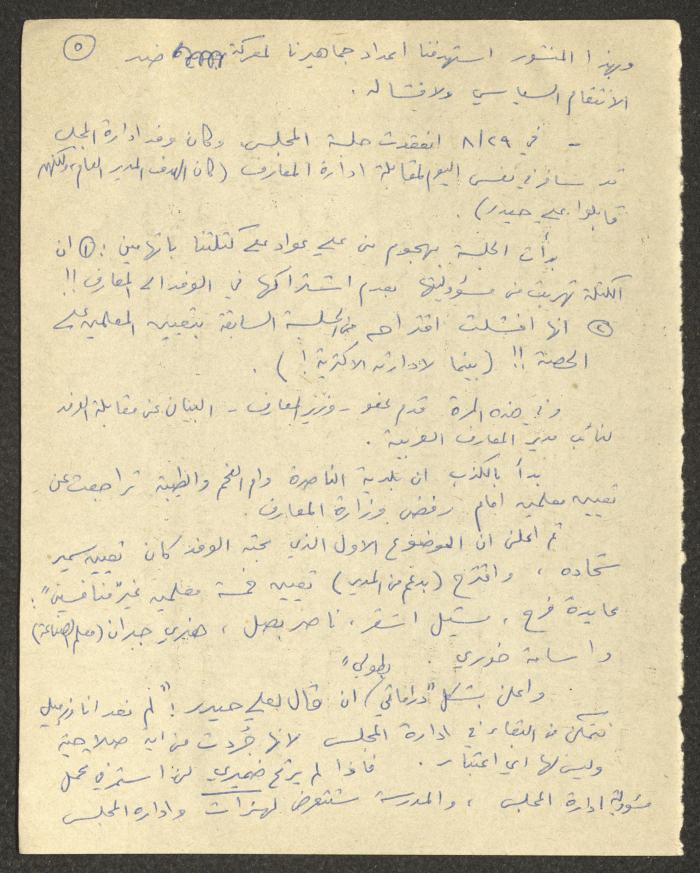 ٥
وبهذا المنشور استهدفنا اعداد جماهيرنا لمعركة ضد
الانتقام السياسي ولافشاله .
- في ٨/٢٩ انعقدت جلسة المجلس، وكان وفد ادارة المجلس
قد سافر في نفس اليوم لمقابلة ادارة المعارف (كان الهدف المدير العام، ولكنهم
قابلوا علي حيدر) .
بدأت الجلسة بهجوم من علي عواد على كتلتنا باتهامين : ① ان
الكتلة تهربت من مسؤوليتها بعدم اشتراكها في الوفد الى المعارف !!
② انها افشلت اقتراحه من الجلسة السابقة بتعيين المعلمين على
الحصة !! (بينما لادارته الاكثرية !) .
وفي هذه المرة قدم عفو - وزير المعارف - البيان عن مقابلة الوفد
لنائب مدير المعارف العربية .
بدأ بالكذب ان بلدية الناصرة وام الفحم والطيبة تراجعت عن
تعيين معلمين امام رفض وزارة المعارف .
ثم اعلن ان الموضوع الاول الذي بحثه الوفد كان تعيين سمير
شحاده ، واقترح (بدعم من المدير) تعيين خمسة معلمين غير "منافسين" :
عايدة فرح ، ستيل اشقر ، ناصر بصل ، هنري جبران (معلم الصناعة)
واسامة خوري .
واعلن بشكل "دراماتي" بطولي" ان قال لعلي حيدر : "لم نعد انا وزميلي
نتمكن من البقاء في ادارة المجلس لانها جُرّدت من اية صلاحية
وليس لها اي اعتبار . فاذا لم يرتح ضميري لن استمر في تحمل
مسؤولية ادارة المجلس ، والمدرسة ستتعرض لهزات وادارة المجلس